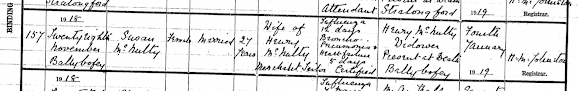 Stralongford
Attendant
Stralongford
Registrar.
BINDING
1918
1919
157 Twentyeighth November Ballybofey
Susan McNulty
Female
Married
27 Years
Wife of Henry McNulty Merchant Tailor
Influenza 12 days Broncho Pneumonia Heart failure 5 days Certified
Henry McNulty Widower Present at death Ballybofey
Fourth January 1919
Registrar.
1918
Influenza